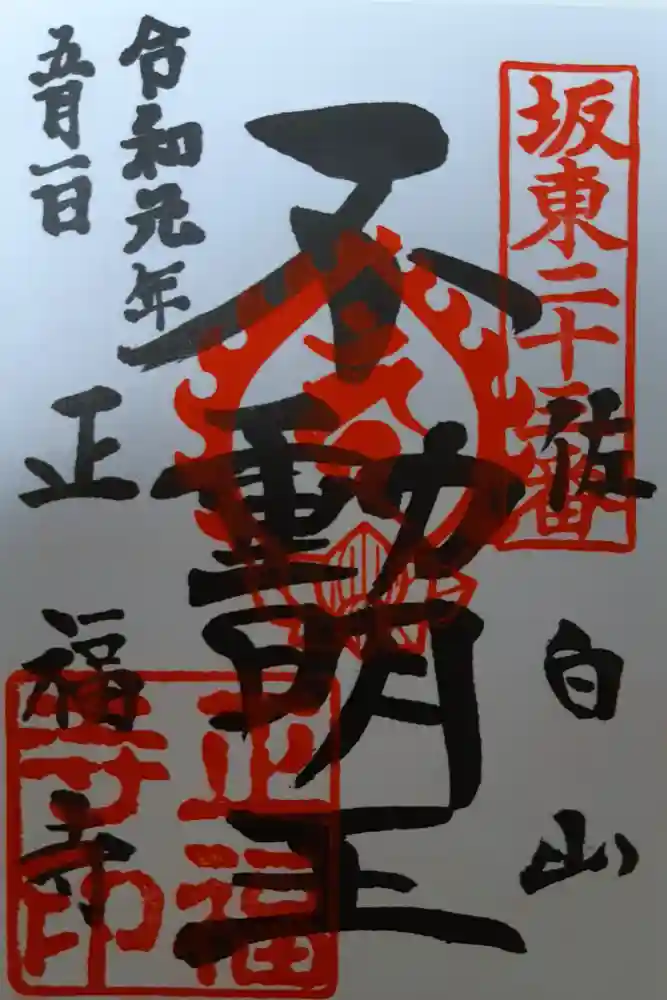 坂東二十三番
佐白山
不動明王
令和元年
五月一日
正福寺
正福
寺印